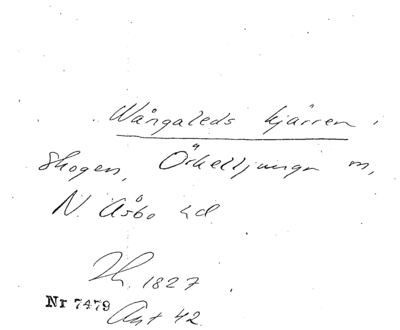 Wångaleds kjärren i
Skogen, Örkelljunga sn,
N. Åsbo hd
Th. 1827.
Nr 7479
Ant 42.